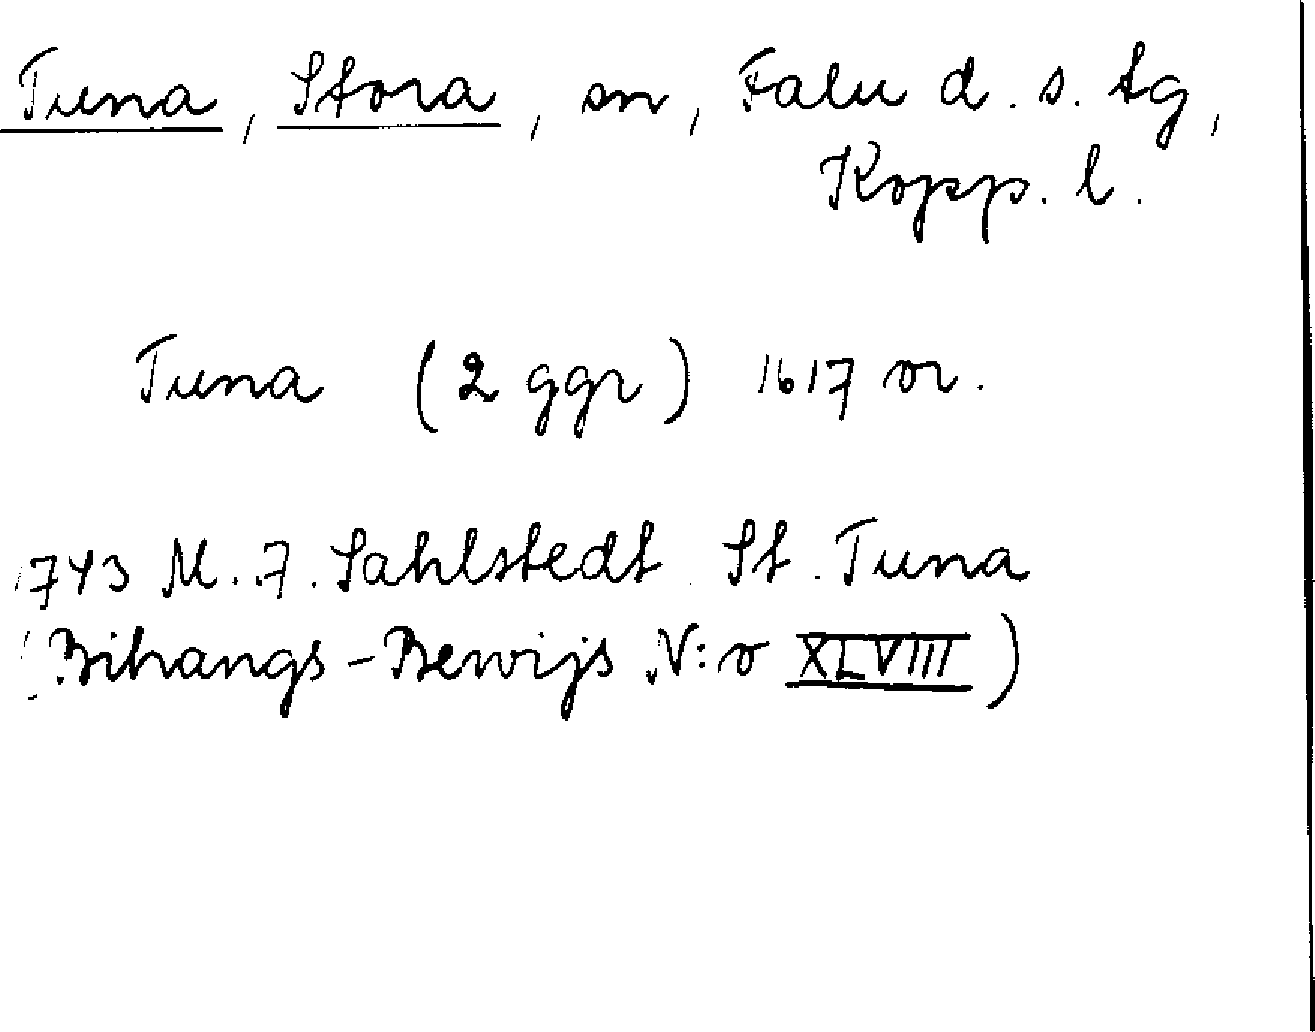 Tuna, Stora, sn, Falu d. s. tg,
Kopp. l.
Tuna (2 ggr) 1617 or.
1743 M. F. Sahlstedt. St. Tuna
(Bihangs-Bewijs N:o XLVIII)